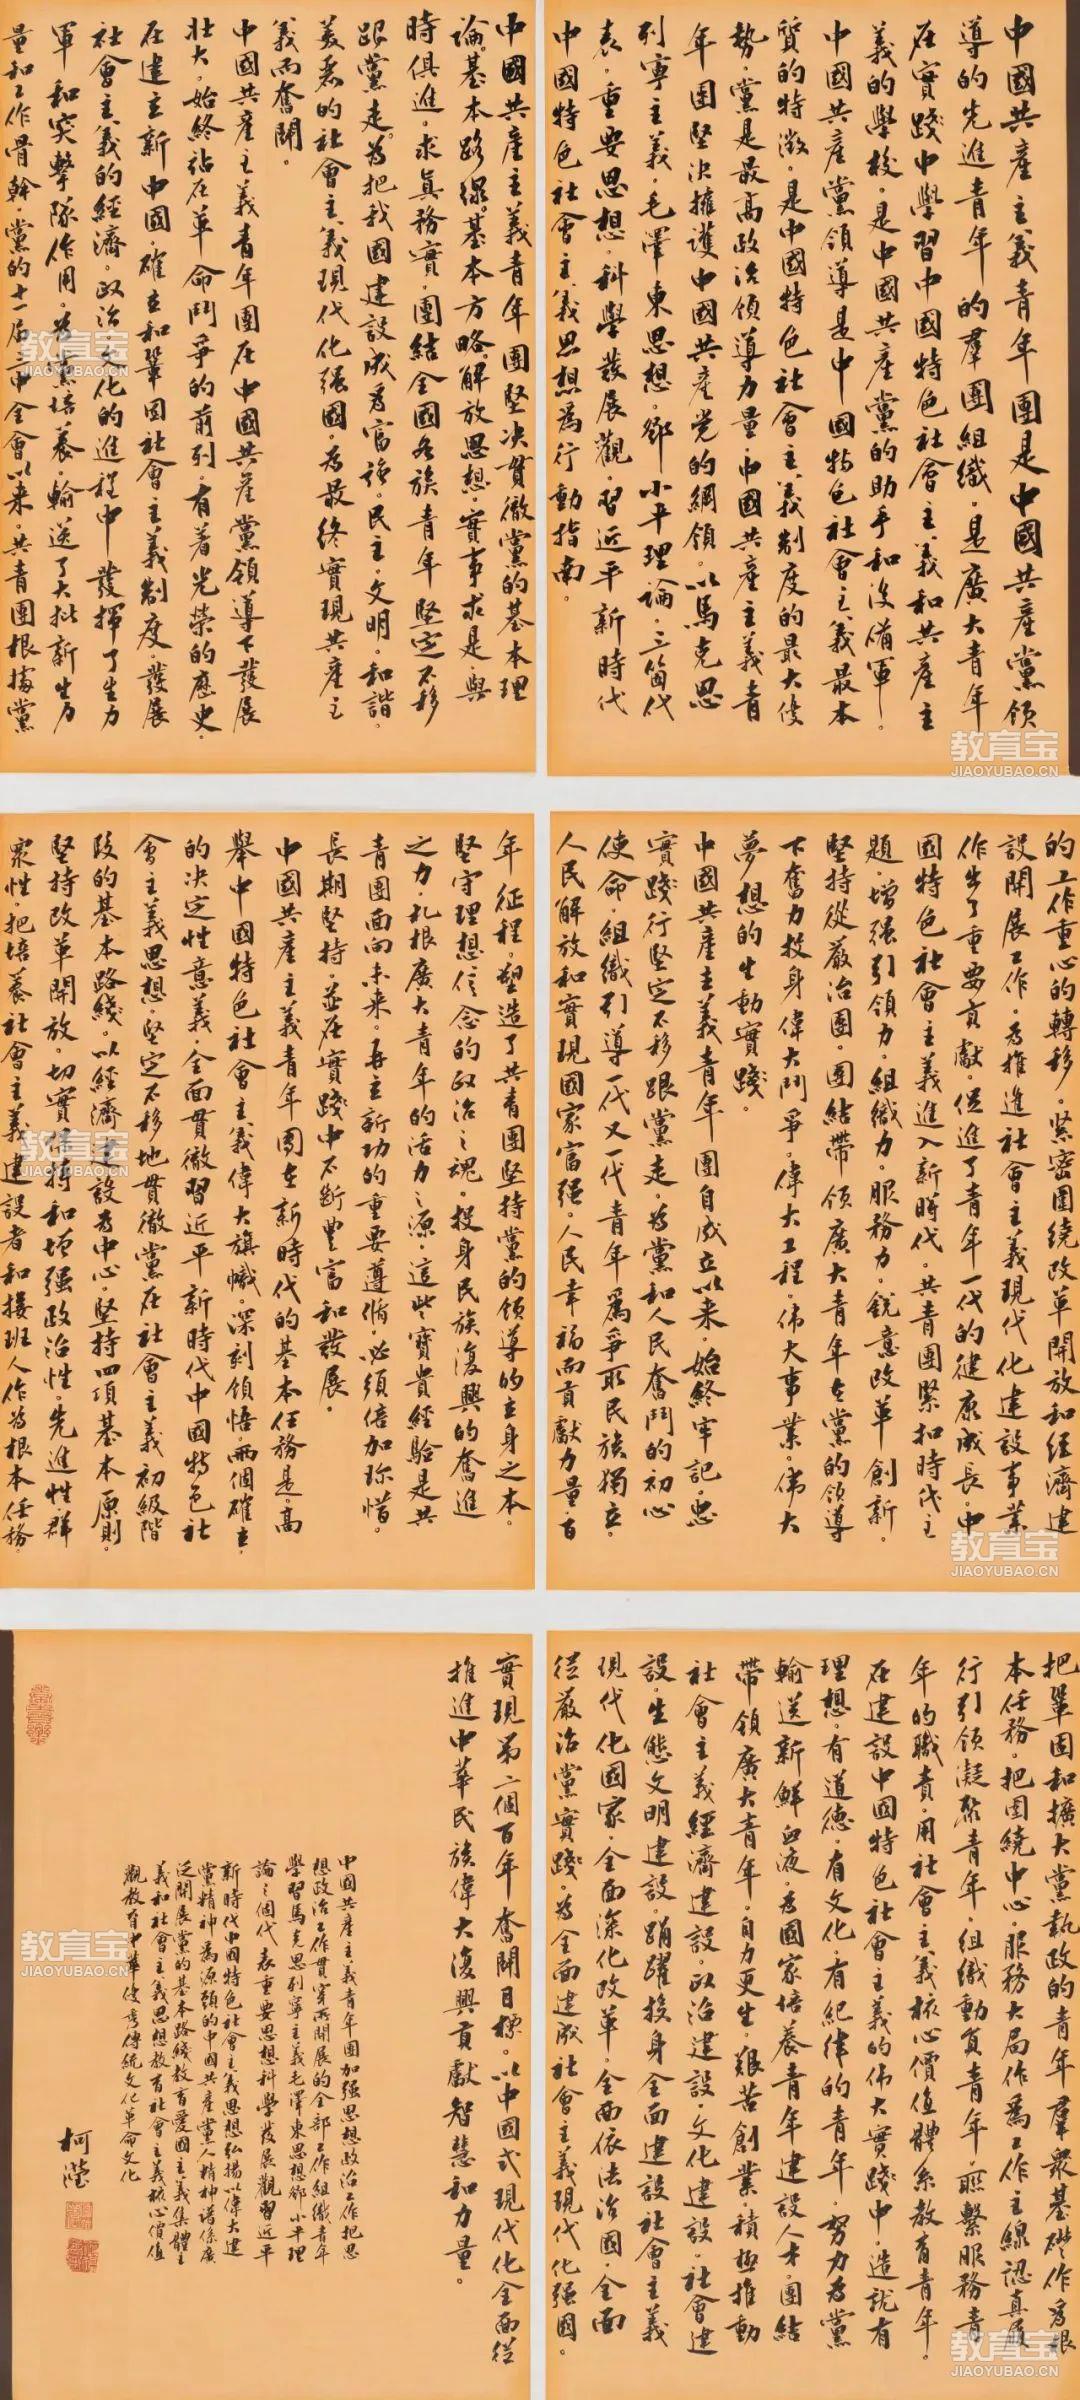 中國共產主義青年團是中國共產黨領
導的先進青年的羣團組織，是廣大青年
在實踐中學習中國特色社會主義和共產主
義的學校，是中國共產黨的助手和後備軍。
中國共產黨領導是中國特色社會主義最本
質的特徵，是中國特色社會主義制度的最大優
勢，黨是最高政治領導力量，中國共產主義青
年團堅決擁護中國共產党的綱領，以馬克思
列寧主義，毛澤東思想，鄧小平理論，三箇代
表，重要思想，科學發展觀，習近平新時代
中國特色社會主義思想為行動指南。
中國共產主義青年團堅決貫徹黨的基本理
論，基本路線，基本方略，解放思想，實事求是，與
時俱進，求真務實，團結全國各族青年堅定不移
跟黨走，為把我國建設成為富強，民主，文明，和諧
美麗的社會主義現代化强國，為最終實現共產主
義而奮鬭。
中國共產主義青年團在中國共產黨領導下發展
壯大，始終站在革命鬥爭的前列，有着光榮的歷史，
在建立新中國，確立和鞏固社會主義制度，發展
社會主義的經濟，政治，文化的進程中發揮了生力
軍和突擊隊作用，為黨培養，輸送了大批新生力
量和工作骨幹，黨的十一届三中全會以來，共青團根據黨
的工作重心的轉移，緊密圍繞改革開放和經濟建
設開展工作，為推進社會主義現代化建設事業
作出了重要貢獻，促進了青年一代的健康成長，中
國特色社會主義進入新時代，共青團緊扣時代主
題，增强引領力，組織力，服務力，銳意改革創新
堅持從嚴治團，團結帶領廣大青年在黨的領導
下奮力投身偉大鬥爭，偉大工程，伟大事業，伟大
夢想的生動實踐。
中國共產主義青年團自成立以來，始終牢記，忠
實踐行堅定不移跟黨走，為黨和人民奮鬥的初心
使命，組織引導一代又一代青年爲爭取民族獨立，
人民解放和實現國家富强，人民幸福而貢獻力量，百
年征程，塑造了共青團堅持黨的領導的立身之本，
堅守理想信念的政治之魂，投身民族復興的奮進
之力，扎根廣大青年的活力之源，這些寶貴經驗是共
青團面向未來，再立新功的重要遵循，必須倍加珍惜，
長期堅持，並在實踐中不斷豐富和發展。
中國共產主義青年團在新時代的基本任務是，高
舉中國特色社會主義偉大旗幟，深刻領悟，兩個確立，
的決定性意義，全面貫徹習近平新時代中國特色社
會主義思想，堅定不移地貫徹黨在社會主義初級階
段的基本路綫，以經濟建設為中心，堅持四項基本原則，
堅持改革開放，切實保持和增强政治性，先進性，群
眾性，把培養社會主義建設者和接班人作為根本任務，
把鞏固和擴大黨執政的青年羣眾基礎作為根
本任務，把圍繞中心，服務大局作為工作主線認真履
行引領凝聚青年，組織動員青年，聯繫服務青
年的職責，用社會主義核心價值體系教育青年。
在建設中國特色社會主義的伟大實踐中，造就有
理想，有道德，有文化，有紀律的青年，努力為黨
輸送新鮮血液，為國家培養青年建設人才，團結
帶領廣大青年，自力更生，艱苦創業，積極推動
社會主義經濟建設，政治建設，文化建設，社會建
設，生態文明建設，踴躍投身全面建設社會主義
現代化國家，全面深化改革，全面依法治國，全面
從嚴治黨實踐，為全面建成社會主義現代化强國
實現第二個百年奮鬭目標，以中國式現代化全面從
推進中華民族偉大復興貢獻智慧和力量。
中國共產主義青年團加强思想政治工作把思
想政治工作貫穿所開展的全部工作組織青年
學習馬克思列寧主義毛澤東思想鄧小平理
論三個代表重要思想科學發展觀習近平
新時代中國特色社會主義思想弘揚以偉大建
黨精神為源頭的中國共產黨人精神譜係廣
泛開展黨的基本路綫教育愛國主義集體主
義和社會主義思想教育社會主義核心價值
觀教育中華優秀傳統文化革命文化
柯瀅
教育宝
JIAOYUBAO.CN
教育宝
JIAOYUBAO.CN
教育宝
JIAOYUBAO.CN
教育宝
JIAOYUBAO.CN
教育宝
JIAOYUBAO.CN
教育宝
JIAOYUBAO.CN